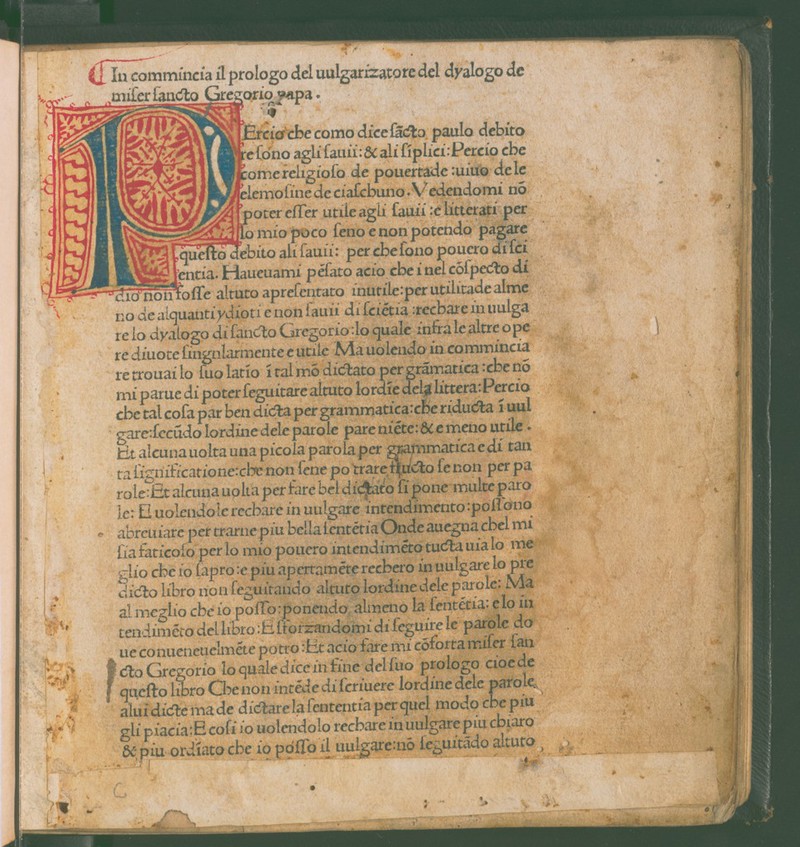 In commincia il prologo del uulgarizatore del dyalogo de
miser sancto Gregorio papa.
PErcio che como dice sãcto paulo debito
re sono agli sauii: & ali sîplici: Percio che
come religioso de pouertade: uiuo de le
elemosine de ciaschuno. Vedendomi nõ
poter esser utile agli sauii: e litterati per
lo mio poco seno e non potendo pagare
questo debito ali sauii: per che sono pouero di sci
entia. Haueuami pẽsato acio che i nel cõspecto di
dio non fosse altuto apresentato inutile: per utilitade alme
no de alquanti ydioti e non sauii di sciẽtia: recbare in uulga
re lo dyalogo di sancto Gregorio: lo quale infra le altre ope
re diuote singnlarmente e utile Ma uolendo in commincia
re trouai lo suo latio ĩ tal mõ dictato per grãmatica: che nõ
mi parue di poter seguitare altuto lordie dela littera: Percio
che tal cosa par ben dicta per grammatica: che riducta ĩ uul
gare: secũdo lordine dele parole pare niẽte: & e meno utile.
Et alcuna uolta una picola parola per grammatica e di tan
ta significatione: che non sene po trare fructo se non per pa
role: Et alcuna uolta per fare bel dictato si pone multe paro
le: E uolendole recbare in uulgare intendimento: possono
abreuiare per trarne piu bella sentẽtia Onde auegna cbel mi
sia faticoso per lo mio pouero intendimẽto tucta uia lo me
glio che io sapro: e piu apertamẽte rechero in uulgare lo pre
dicto libro non seguitando altuto lordine dele parole: Ma
al meglio che io posso: ponendo almeno la sentẽtia: e lo in
tendimẽto del libro: E sforzandomi di seguire le parole do
ue conueneuelmẽte potro: Et acio fare mi cõforta miser san
cto Gregorio lo quale dice in fine del suo prologo cioe de
questo libro Che non intẽde di scriuere lordine dele parole
alui dicte ma de dictare la sententia per quel modo che piu
gli piacia: E cosi io uolendolo recbare in uulgare piu chiaro
& piu ordĩato che io posso il uulgare: nõ seguitãdo altuto